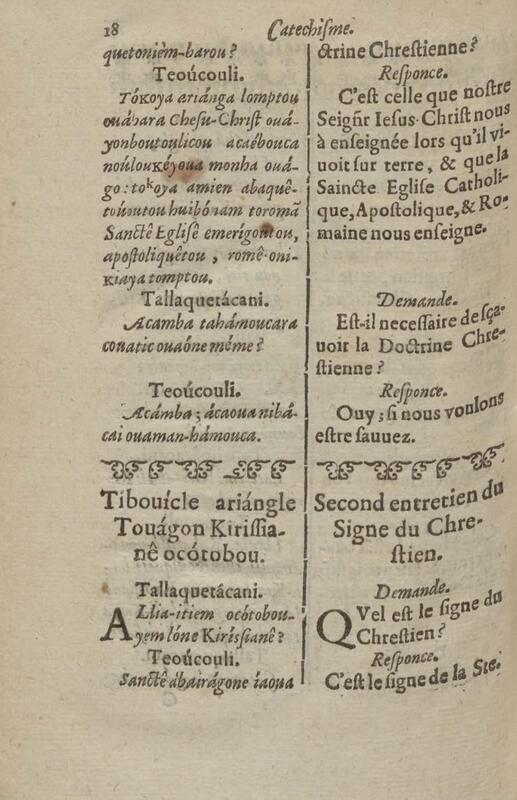 18
Catechiſme.
quetonièm-barou?
Teoúcouli.
Tókoya ariánga lomptou
ouábara Cheſu-Chriſt ouá-
yonboutoulicou acaébouca
noúloukéyoua monha ouá-
go: tokoya amien abaquê-
touuutou huibónam toromã
Sanctê Egliſê emerigontou,
apoſtoliquêtou, romê-oni-
kiaya tomptou.
Tallaquetácani.
Acamba tahámoucara
couatic ouaóne méme?
Teoúcouli.
Acámba; ácaoua nibá-
cai ouaman-hámouca.
Tibouícle ariángle
Touágon Kiriſſia-
nê ocótobou.
Tallaquetácani.
Allia-itiem ocótobou-
yem lóne Kiríſsianê?
Teoúcouli.
Sanctê ábairágone íaoua
ctrine Chreſtienne?
Reſponce.
C'eſt celle que noſtre
Seigñr Iesus-Chriſt nous
à enſeignée lors qu'il vi-
uoit ſur terre, & que la
Saincte Egliſe Catholi-
que, Apoſtolique, & Ro-
maine nous enſeigne.
Demande.
Eſt-il neceſſaire de ſça-
uoir la Doctrine Chre-
ſtienne?
Reſponce.
Ouy; ſi nous voulons
eſtre ſauuez.
Second entretien du
Signe du Chre-
ſtien.
Demande.
QVel eſt le ſigne du
Chreſtien?
Reſponce.
C'eſt le ſigne de la Ste.